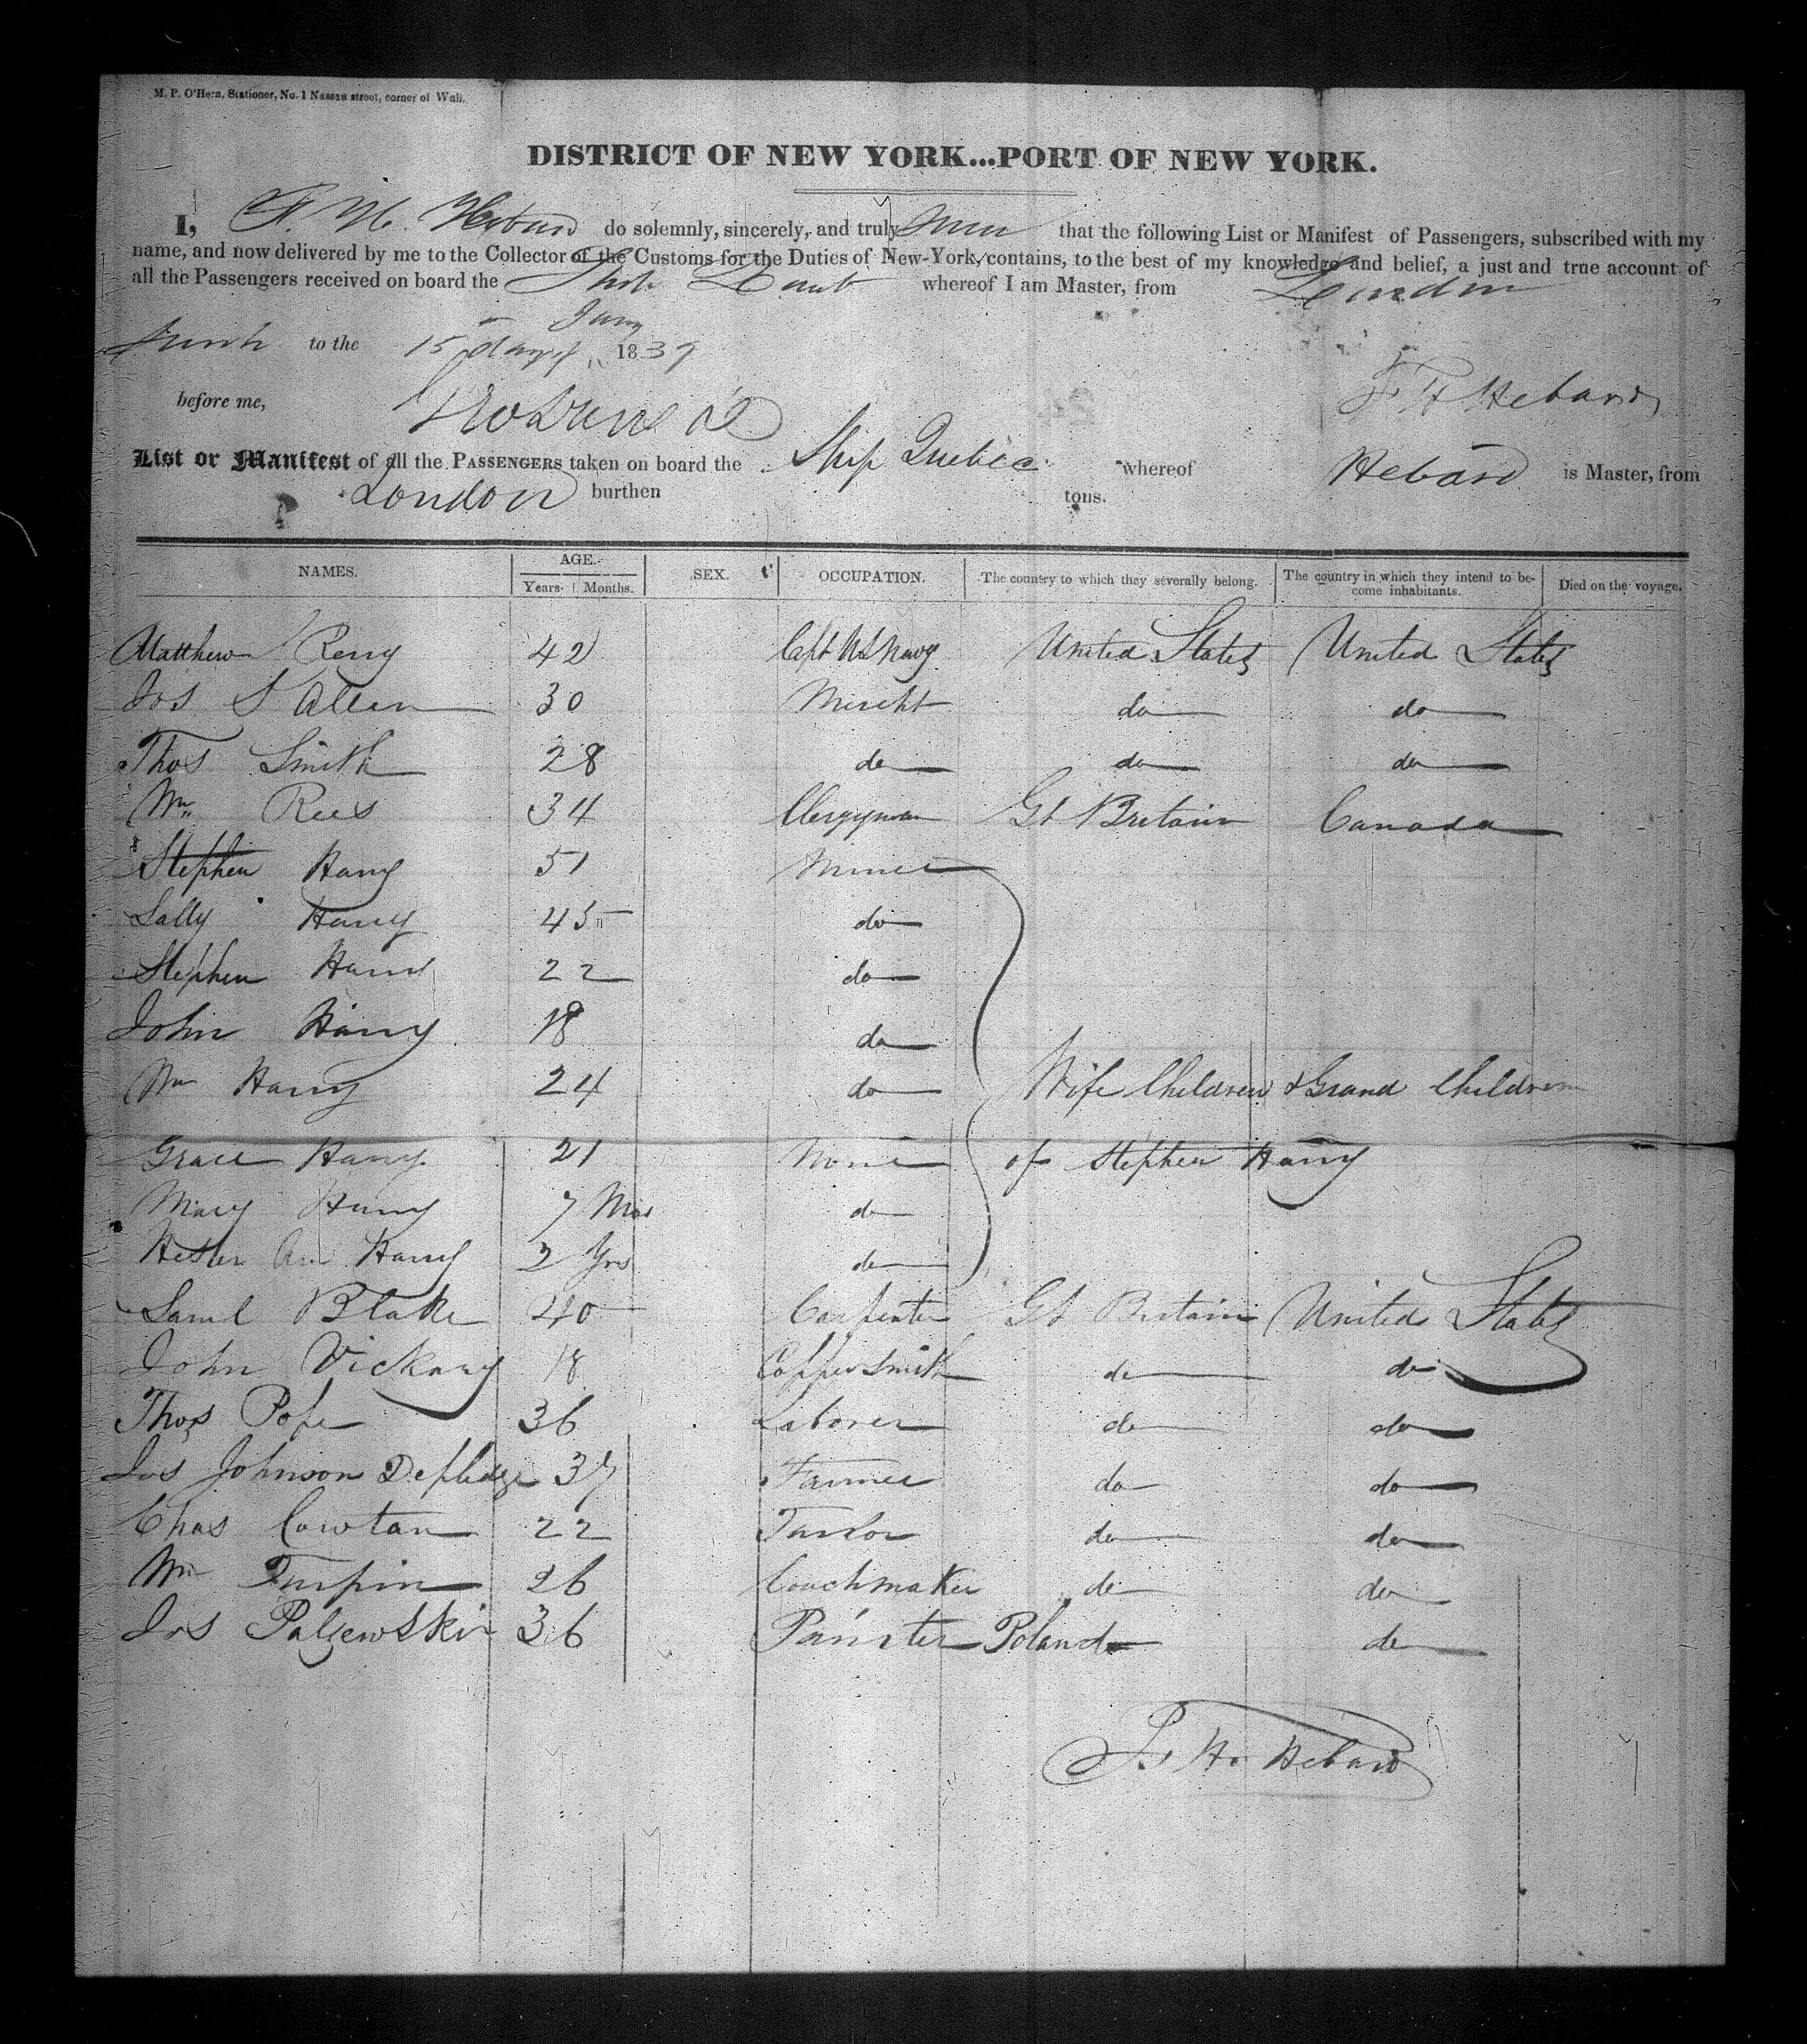 M. P. O'Hern, Stationer, No. 1 Nassau street, corner of Wall.
DISTRICT OF NEW YORK...PORT OF NEW YORK.
I, F. H. Hebard do solemnly, sincerely, and truly that the following List or Manifest of Passengers, subscribed with my
name, and now delivered by me to the Collector of the Customs for the Duties of New-York, contains, to the best of my knowledge and belief, a just and true account of
all the Passengers received on board the whereof I am Master, from London
to the 15 day of Jany 1839
before me, F H Hebard
List or Manifest of all the PASSENGERS taken on board the Ship Quebec whereof Hebard is Master, from
London burthen tons.
NAMES. AGE. Years. Months. SEX. OCCUPATION. The country to which they severally belong. The country in which they intend to become inhabitants. Died on the voyage.
Matthew Perry 42 Capt US Navy United States United States
Jos S Allen 30 Mercht do do
Thos Smith 28 do do do
Wm Rees 34 Clergyman Gt Britain Canada
Stephen Harry 51 Miner
Sally Harry 45 do
Stephen Harry 22 do
John Harry 18 do
Wm Harry 24 do Wife Children & Grand Children
Grace Harry 21 None of Stephen Harry
Mary Harry 7 Mos do
Hester Ann Harry 2 Yrs do
Saml Blake 40 Carpenter Gt Britain United States
John Vickary 18 Coppersmith do do
Thos Pope 36 Laborer do do
Jos Johnson Depledge 37 Farmer do do
Chas Cowtan 22 Tailor do do
Wm Turpin 26 Coachmaker do do
Jos Palzewski 36 Painter Poland do
F. H. Hebard